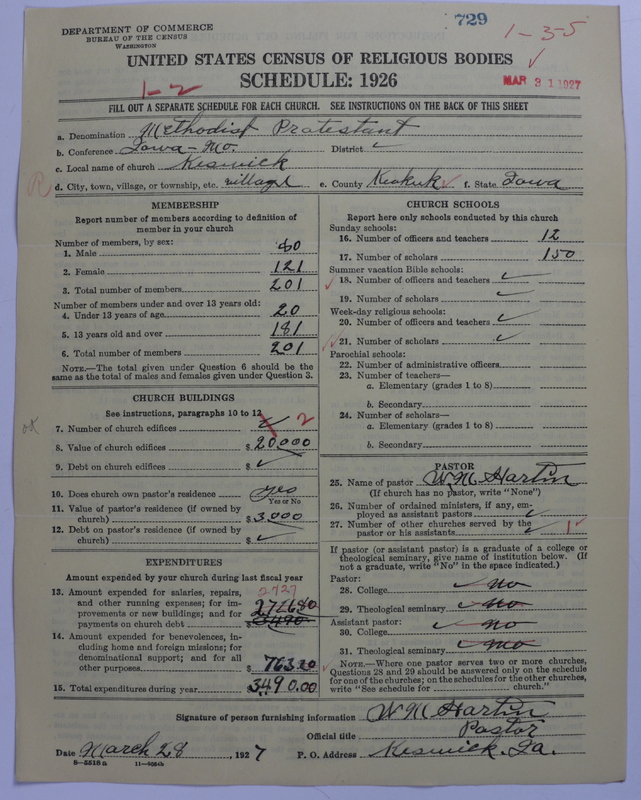 729
1-3-5
DEPARTMENT OF COMMERCE
BUREAU OF THE CENSUS
WASHINGTON
UNITED STATES CENSUS OF RELIGIOUS BODIES
SCHEDULE: 1926
1-2
MAR 31 1927
FILL OUT A SEPARATE SCHEDULE FOR EACH CHURCH. SEE INSTRUCTIONS ON THE BACK OF THIS SHEET
a. Denomination Methodist Protestant
b. Conference Iowa-Mo. District ✓
c. Local name of church Keswick
R d. City, town, village, or township, etc. village e. County Keokuk f. State Iowa
MEMBERSHIP
Report number of members according to definition of
member in your church
Number of members, by sex:
1. Male 80
2. Female 121
3. Total number of members 201
Number of members under and over 13 years old:
4. Under 13 years of age 20
5. 13 years old and over 181
6. Total number of members 201
NOTE.—The total given under Question 6 should be
same as the total of males and females given under Question 3.
CHURCH BUILDINGS
See instructions, paragraphs 10 to 12
7. Number of church edifices 2
8. Value of church edifices $ 20000
9. Debt on church edifices $ ✓
10. Does church own pastor's residence yes
Yes or No
11. Value of pastor's residence (if owned by
church) $ 3,000
12. Debt on pastor's residence (if owned by
church) $ ✓
EXPENDITURES
Amount expended by your church during last fiscal year
2727
13. Amount expended for salaries, repairs,
and other running expenses; for im-
provements or new buildings; and for 2726.80
payments on church debt $ 3490
14. Amount expended for benevolences, in-
cluding home and foreign missions; for
denominational support; and for all
other purposes $ 763.20
15. Total expenditures during year $ 3490.00
CHURCH SCHOOLS
Report here only schools conducted by this church
Sunday schools:
16. Number of officers and teachers 12
17. Number of scholars 150
Summer vacation Bible schools:
18. Number of officers and teachers ✓
19. Number of scholars ✓
Week-day religious schools:
20. Number of officers and teachers ✓
21. Number of scholars ✓
Parochial schools:
22. Number of administrative officers
23. Number of teachers—
a. Elementary (grades 1 to 8)
b. Secondary
24. Number of scholars—
a. Elementary (grades 1 to 8)
b. Secondary
PASTOR
25. Name of pastor W.M. Hartin
(If church has no pastor, write "None")
26. Number of ordained ministers, if any, em-
ployed as assistant pastors ✓
27. Number of other churches served by the
pastor or his assistants ✓ 1
If pastor (or assistant pastor) is a graduate of a college or
theological seminary, give name of institution below. (If
not a graduate, write "No" in the space indicated.)
Pastor:
28. College No
29. Theological seminary No
Assistant pastor:
30. College No
31. Theological seminary No
NOTE.—Where one pastor serves two or more churches,
Questions 28 and 29 should be answered only on the schedule
for one of the churches; on the schedules for the other churches,
write "See schedule for church."
Signature of person furnishing information W M Hartin
Official title Pastor
Date March 28 1927 P. O. Address Keswick. Ia.